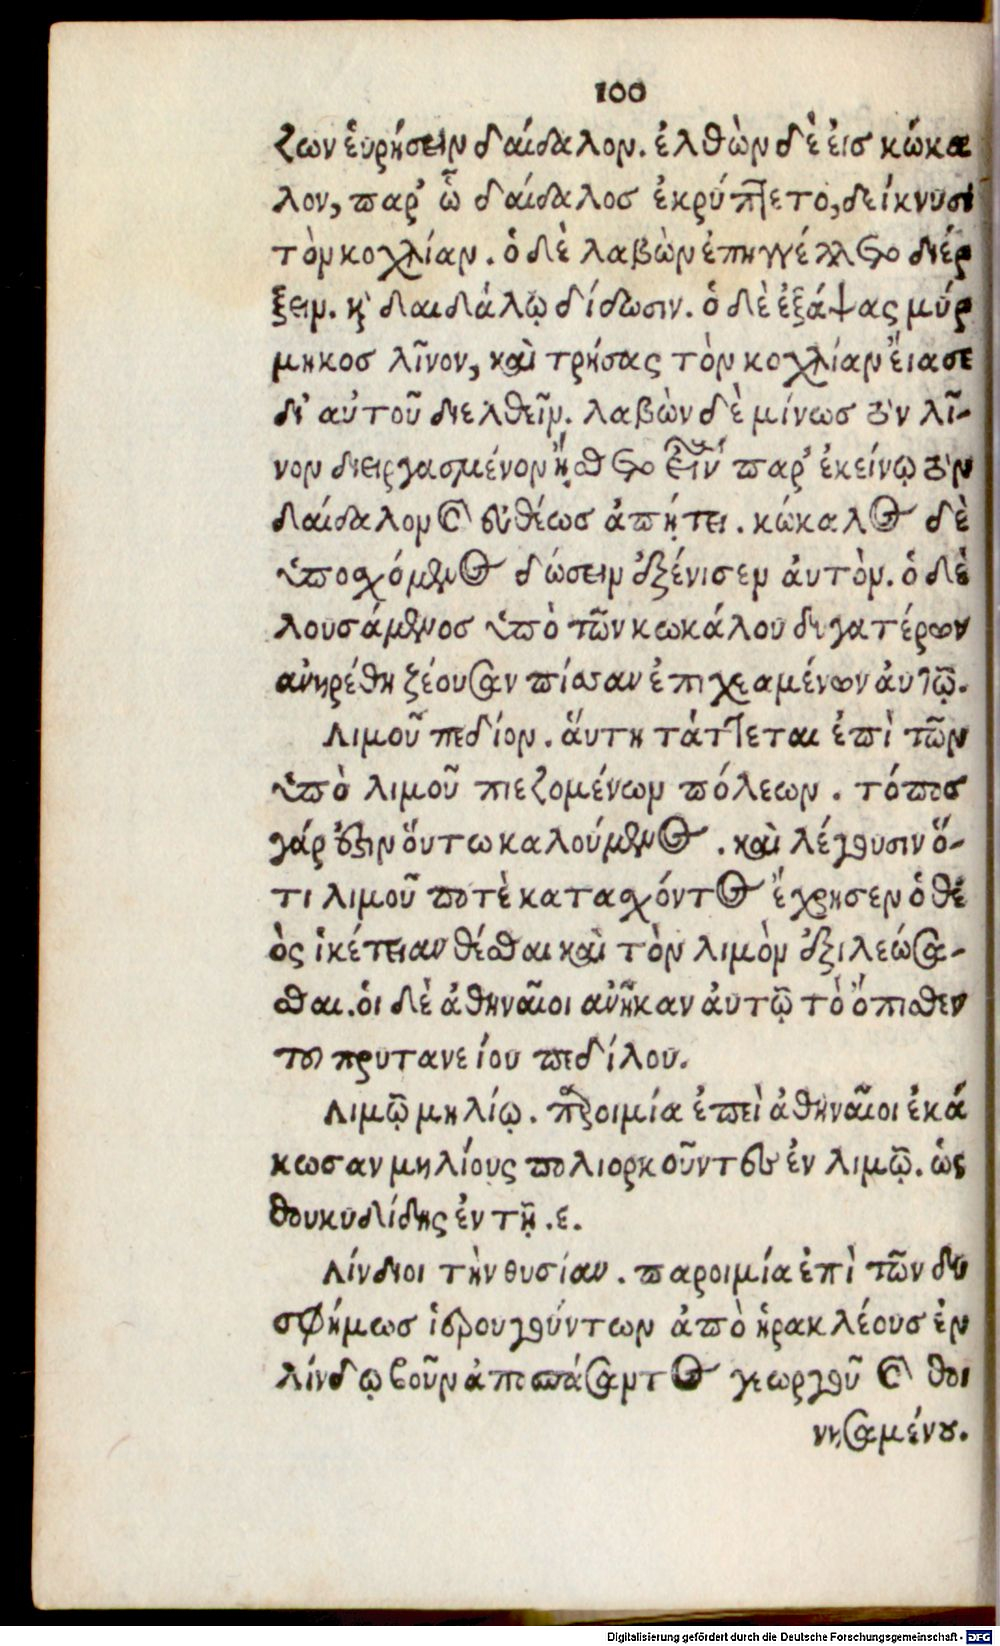 100
ζων ἑυρήσειν δαίδαλον. ἐλθὼν δὲ ἐις κώκα
λον, παρ' ᾧ δαίδαλος ἐκρύπτετο, δείκνυσι
τὸν κοχλίαν. ὁ δὲ λαβὼν ἐπηγγέλλετο διέρ
ξειν. κὶ δαιδάλῳ δίδωσιν. ὁ δὲ ἐξάψας μύρ
μηκος λῖνον, καὶ τρήσας τὸν κοχλίαν ἔιασε
δι' αὐτοῦ διελθεῖν. λαβὼν δὲ μίνως τὸν λῖ-
νον διειργασμένον ᾔσθετο εἶναι παρ' ἐκείνῳ τὸν
δαίδαλον καὶ εὐθέως ἀπῄτει. κώκαλος δὲ
ὑποσχόμενος δώσειν ἐξένισεν ἀυτὸν. ὁ δὲ
λουσάμενος ὑπὸ τῶν κωκάλου θυγατέρων
ἀνῃρέθη ζέουσαν πίσσαν ἐπιχεαμένων ἀυτῷ.
Λιμοῦ πεδίον. ἅυτη τάττεται ἐπὶ τῶν
ὑπὸ λιμοῦ πιεζομένων πόλεων. τόπος
γάρ ἐστιν ὅυτω καλούμενος. καὶ λέγουσιν ὅ-
τι λιμοῦ ποτὲ κατασχόντος ἔχρησεν ὁ θε
ὸς ἱκέτειαν θέσθαι καὶ τὸν λιμὸν ἐξιλεώσα-
σθαι. ὁι δὲ ἀθηναῖοι ἀνῆκαν ἀυτῷ τὸ ὄπισθεν
του πρυτανείου πεδίλου.
Λιμῷ μηλίῳ. παροιμία ἐπεὶ ἀθηναῖοι ἐκά
κωσαν μηλίους πολιορκοῦντες ἐν λιμῷ. ὡς
θουκυδίδης ἐν τῇ .ε.
Λίνδιοι τὴν θυσίαν. παροιμία ἐπὶ τῶν δυ
σφήμως ἱερουργούντων ἀπὸ ἡρακλέους ἐν
λίνδῳ βοῦν ἀποσπάσαντος γεωργοῦ καὶ θοι
νησαμένου.
Digitalisierung gefördert durch die Deutsche Forschungsgemeinschaft - DFG